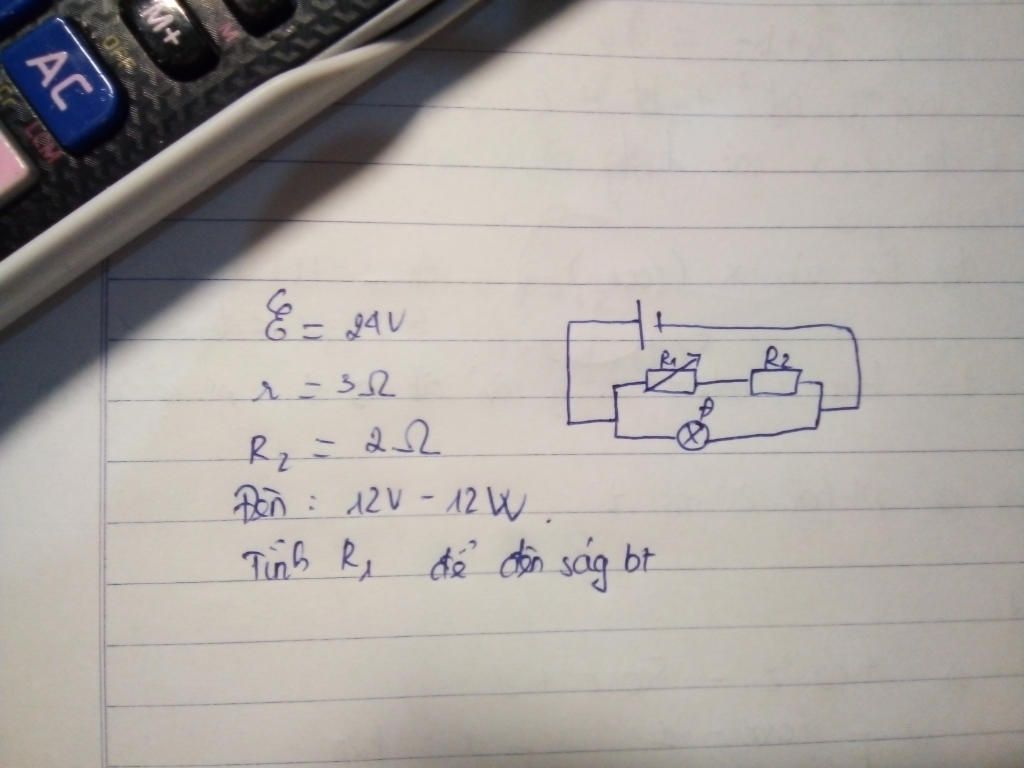 AC
M+
M
Off
LCM
ℰ = 24V
r = 3Ω
R₂ = 2Ω
Đèn : 12V - 12W.
Tính R₁ để đèn ság bt
R₁
R₂
Đ